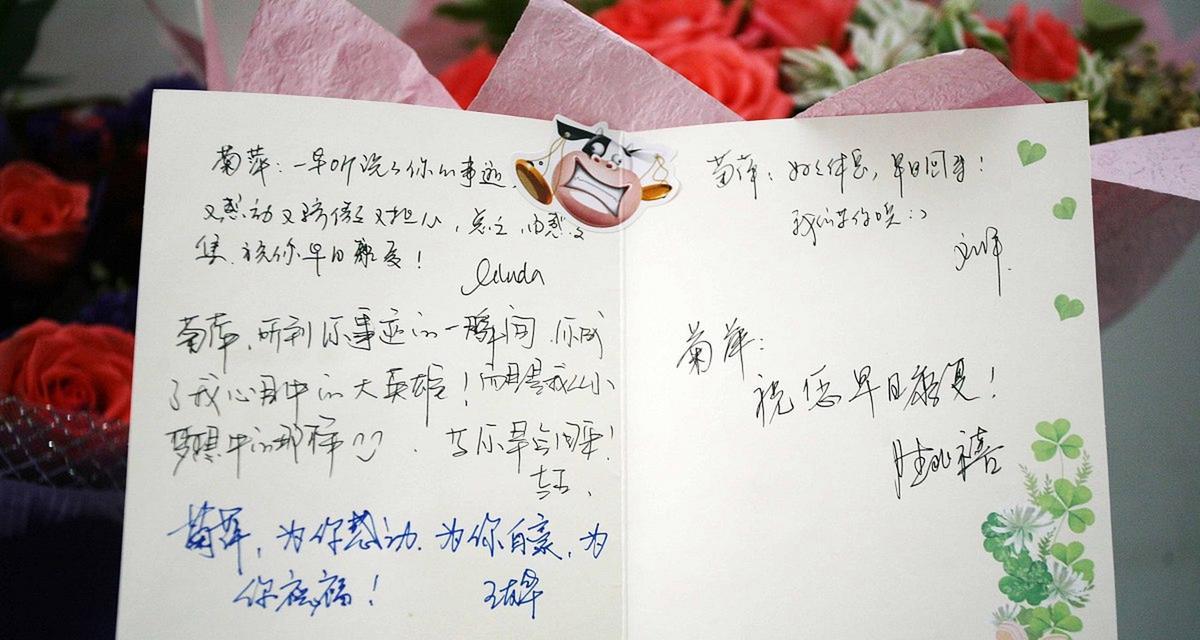 菊萍：一早听说了你的事迹，
又感动又骄傲又担心，总之，
集，祝你早日康复！
菊萍，听到你事迹的一瞬间，你成
了我心目中的大英雄！而且是我从小
梦想中的那样 等你早点回来！
菊萍，为你感动，为你自豪，为
你祝福！
菊萍，好好休息，早日回来！
我们等你哦：）
菊萍：
祝您早日康复！
陆兆禧